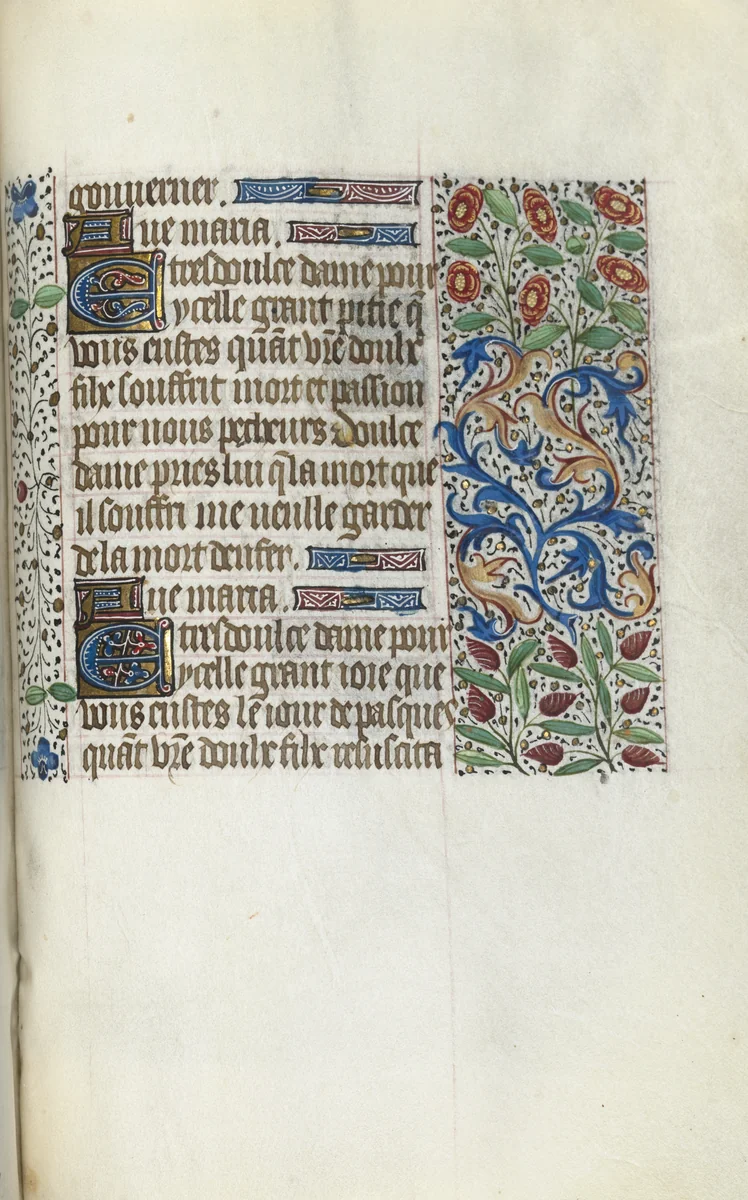 gouuerner.
Aue maria.
E tresdoulce dame pour
ycelle grant pitie q̃
vous eustes quãt vr̃e doulx
filx souffrit mort et passion
pour nous pecheurs doulce
dame pries lui q̃ la mort que
il souffri me ueulle garder
de la mort denfer.
Aue maria.
E tresdoulce dame pour
ycelle grant ioie que
vous eustes le iour de pasques
quãt vr̃e doulx filx resuscita